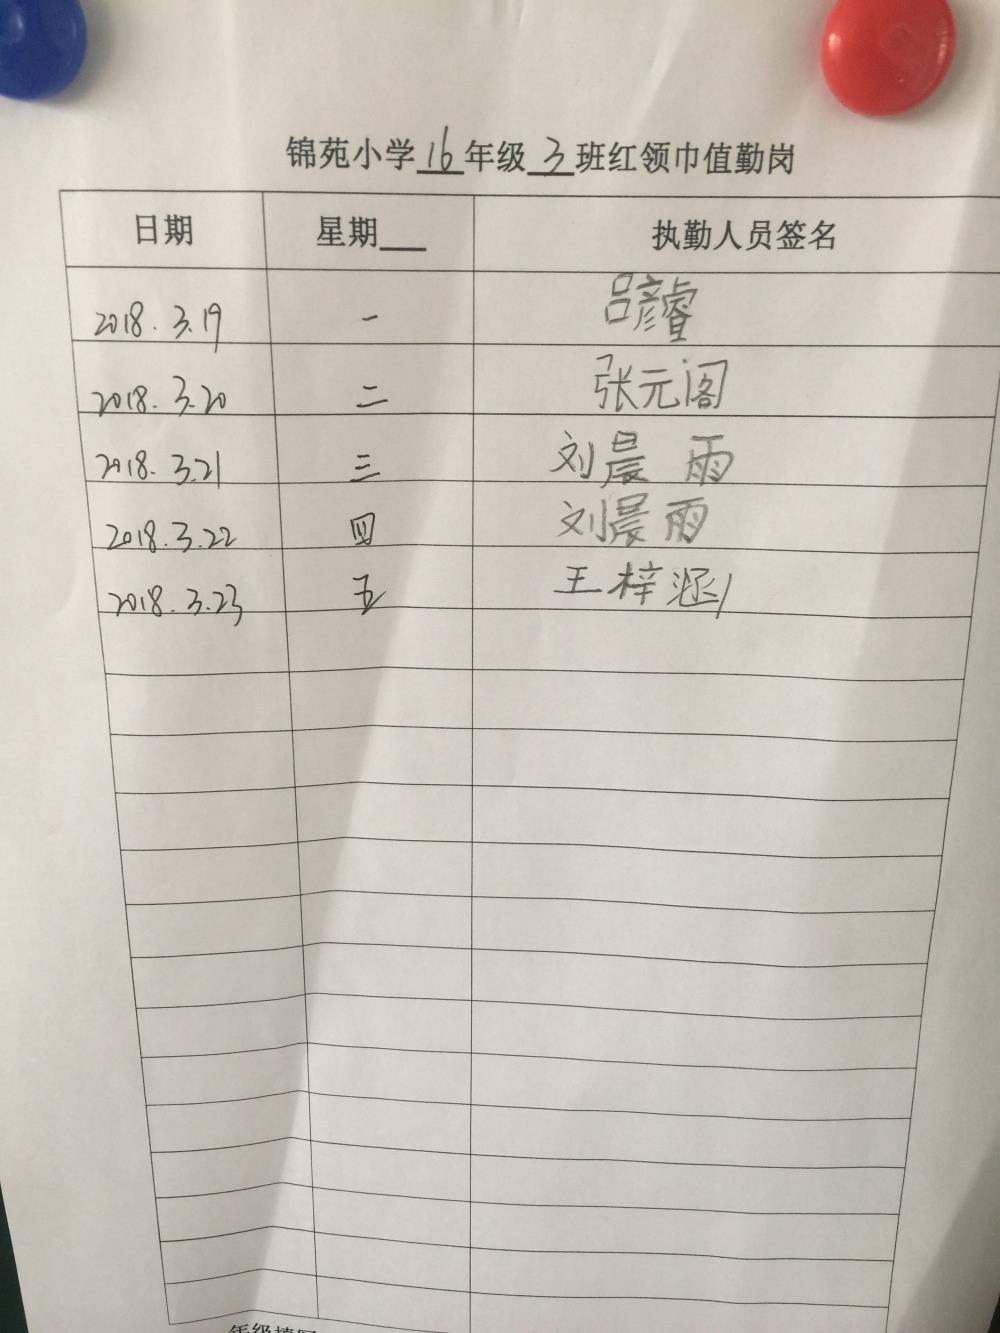 锦苑小学16年级3班红领巾值勤岗
日期 星期 执勤人员签名
2018.3.19 一 吕彦睿
2018.3.20 二 张元阁
2018.3.21 三 刘晨雨
2018.3.22 四 刘晨雨
2018.3.23 五 王梓涵